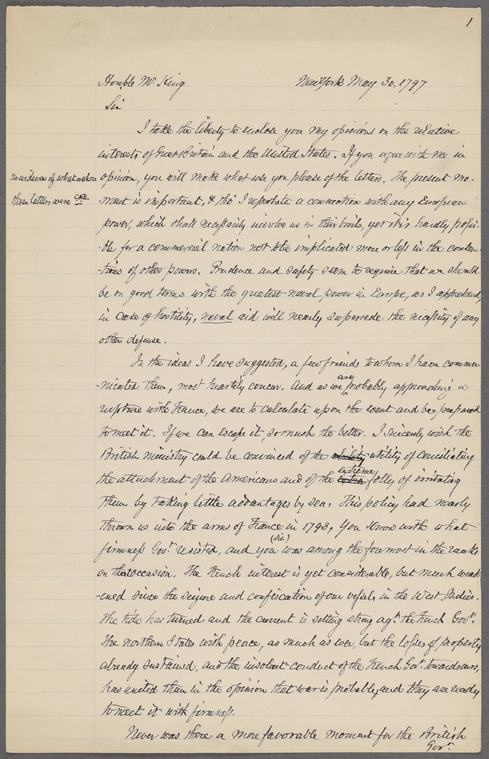 1
Honble Mr. King New York May 30. 1797
Sir
I take the liberty to enclose you my opinions on the relative
interests of Great Britain and the United States. If you agree with me in
opinion, you will make what use you please of the letters. The present mo-
ment is important, & tho' I reprobate a connection with any European
power, which shall necessarily involve us in their broils, yet it is hardly possi-
ble for a commercial nation not to be implicated more or less in the conten-
tions of other powers. Prudence and safety seem to require that we should
be on good terms with the greatest naval power in Europe, as I apprehend,
in case of hostility, naval aid will nearly supersede the necessity of any
other defense.
In the ideas I have suggested, a few friends to whom I have commu-
nicated them, most heartily concur. And as we are probably approaching a
rupture with France, we are to calculate upon the event and be prepared
to meet it. If we can escape it, so much the better. I sincerely wish the
British ministry could be convinced of the utility of conciliating
the attachment of the Americans and of the extreme folly of irritating
them by taking little advantages by sea. This policy had nearly
thrown us into the arms of France in 1793, You know with what
firmness Govt. resisted, and you (sic) was among the foremost in the ranks
on that occasion. The French interest is yet considerable, but much weak-
ened since the seizure and confiscation of our vessels in the West Indies.
The tide has turned and the current is setting strong agt. the French Govt.
The northern States wish peace, as much as ever, but the losses of property
already sustained, and the insolent conduct of the French Govt. towards ours,
has united them in the opinion that war is probable, and they are ready
to meet it with firmness.
Never was there a more favorable moment for the British
Govt.
these letters were